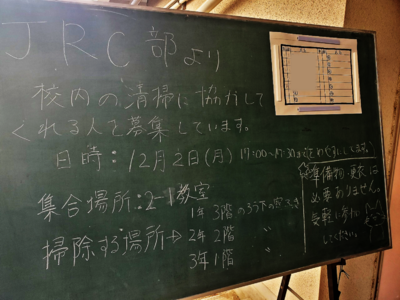 J.R.C部より
校内の清掃に協力して
くれる人を募集しています。
日時：12月2日(月) 17:00～17:30
集合場所：2-1教室
掃除する場所→
1年 3階のろうか
2年 2階 〃
3年 1階 〃
準備物・更衣は
必要ありません。
気軽に参加
してください。